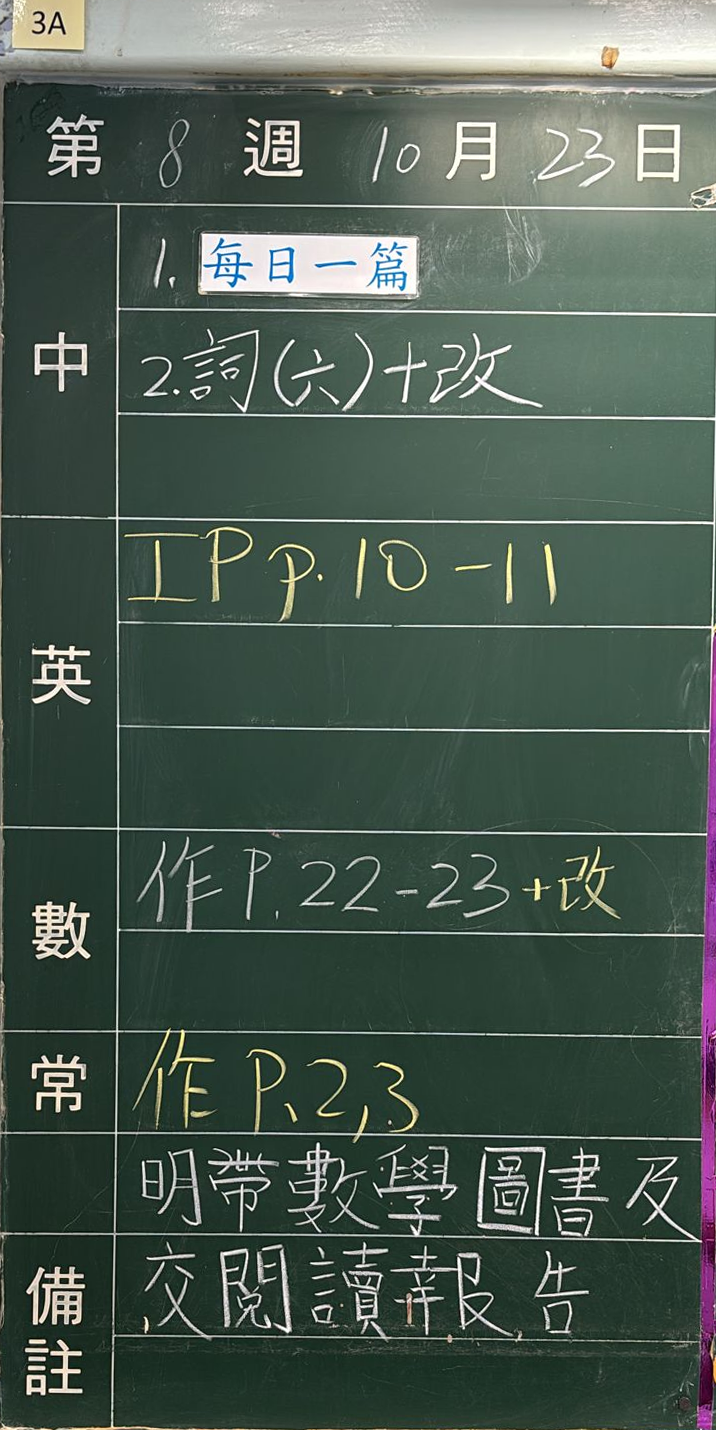 3A
第 8 週 10 月 23 日
中
1. 每日一篇
2.詞(六)+改
英
IP p.10-11
數
作 P.22-23+改
常
作 P.2,3
明帶數學圖書及
備註
交閱讀報告